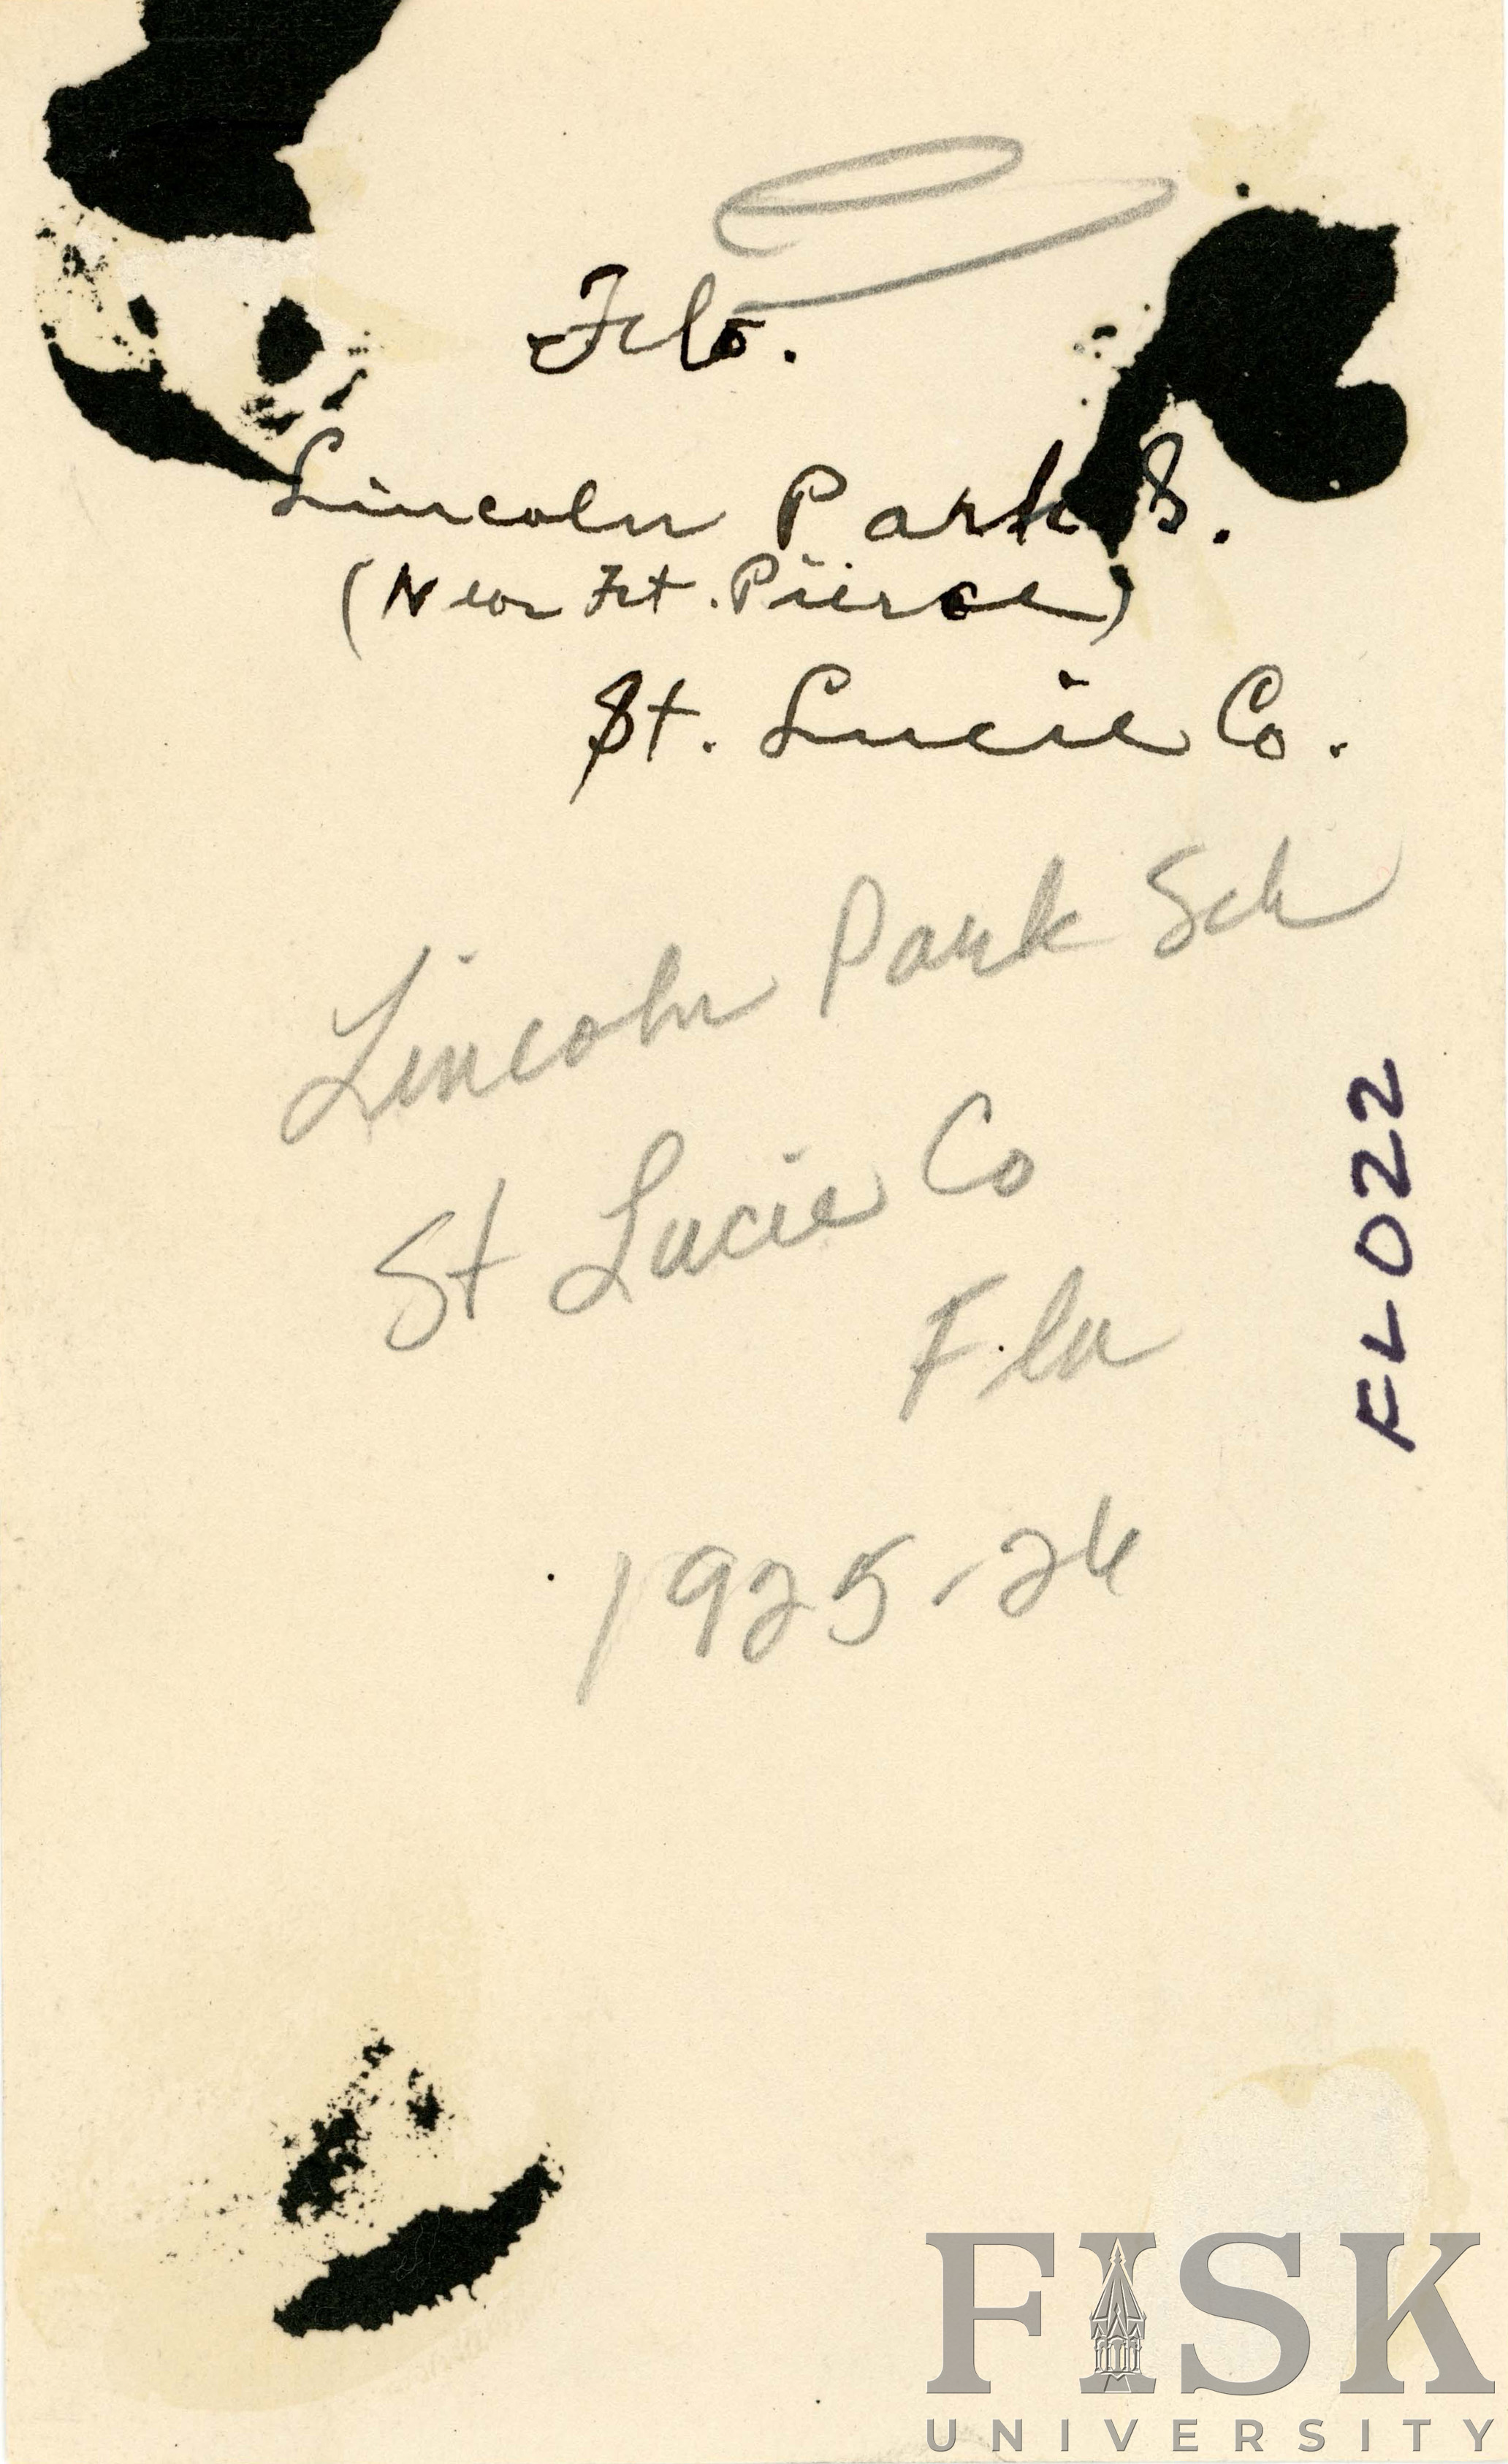 Fla.
Lincoln Park S.
(Near Ft. Pierce)
St. Lucie Co.
Lincoln Park Sch
St Lucie Co
Fla
1925-26
FL022
FISK
UNIVERSITY